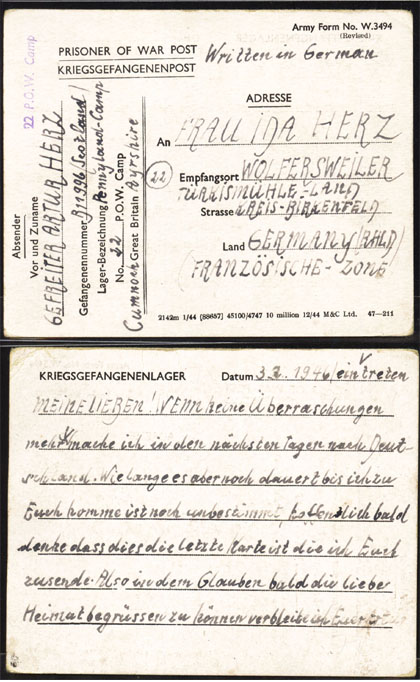 Army Form No. W.3494
(Revised)
PRISONER OF WAR POST
KRIEGSGEFANGENENPOST
Written in German
22 P.O.W. Camp
ADRESSE
An FRAU IDA HERZ
22
Empfangsort WOLFERSWEILER
TÜRKISMÜHLE-LAND
Strasse KREIS-BIRKENFELD
Land GERMANY (RHLD)
FRANZÖSISCHE-ZONE
Absender
Vor und Zuname
GEFREITER ARTUR HERZ
Gefangenennummer B11996 Scotland
Lager-Bezeichnung Pennyland-Camp
No. 22 P.O.W. Camp
Cumnock Great Britain Ayrshire
2142m 1/44 [88687] 45100/4747 10 million 12/44 M&C Ltd. 47—211
KRIEGSGEFANGENENLAGER Datum 3.2.1946 eintreten
MEINE LIEBEN! WENN keine Überraschungen
mehr mache ich in den nächsten Tagen nach Deut-
schland. Wie lange es aber noch dauert bis ich zu
Euch komme ist noch unbestimmt, hoffentlich bald
denke dass dies die letzte Karte ist die ich Euch
zusende. Also in dem Glauben bald die liebe
Heimat begrüssen zu können verbleibe ich Euer